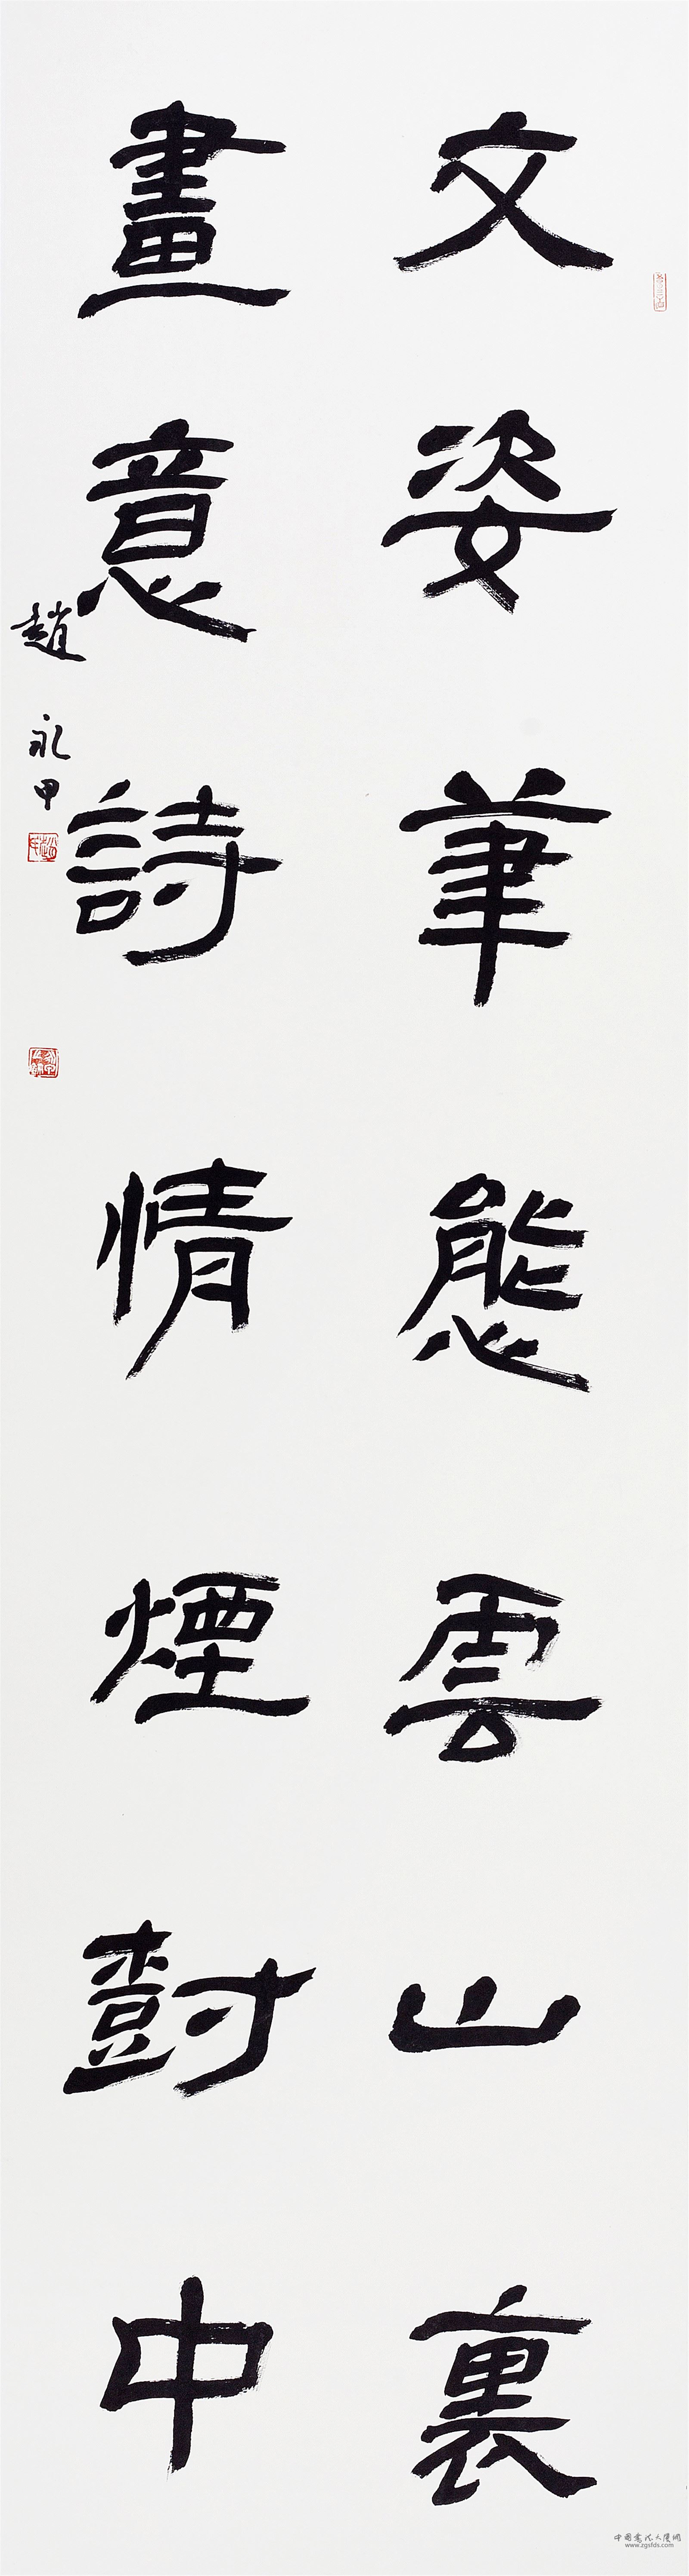 文姿筆態雲山裏
畫意詩情煙樹中
趙永甲
中國書法大廈網
www.zgsfds.com